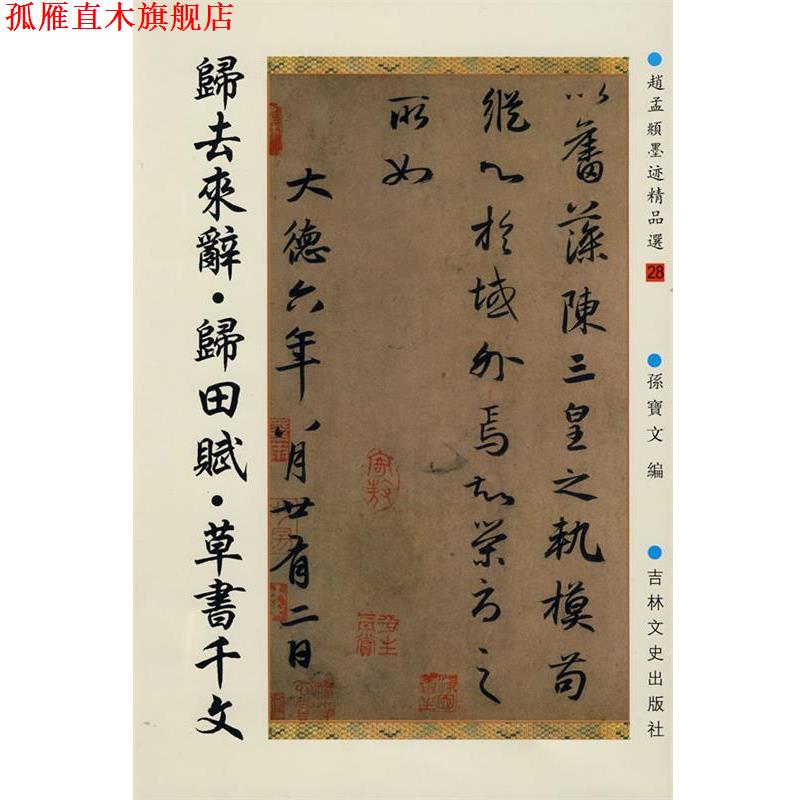 孤雁直木旗舰店
趙孟頫墨迹精品選 28
孫寶文 編
吉林文史出版社
以奮藻陳三皇之軌模苟
縱心於域外焉知榮辱之
所如
大德六年八月廿有二日
歸去來辭·歸田賦·草書千文